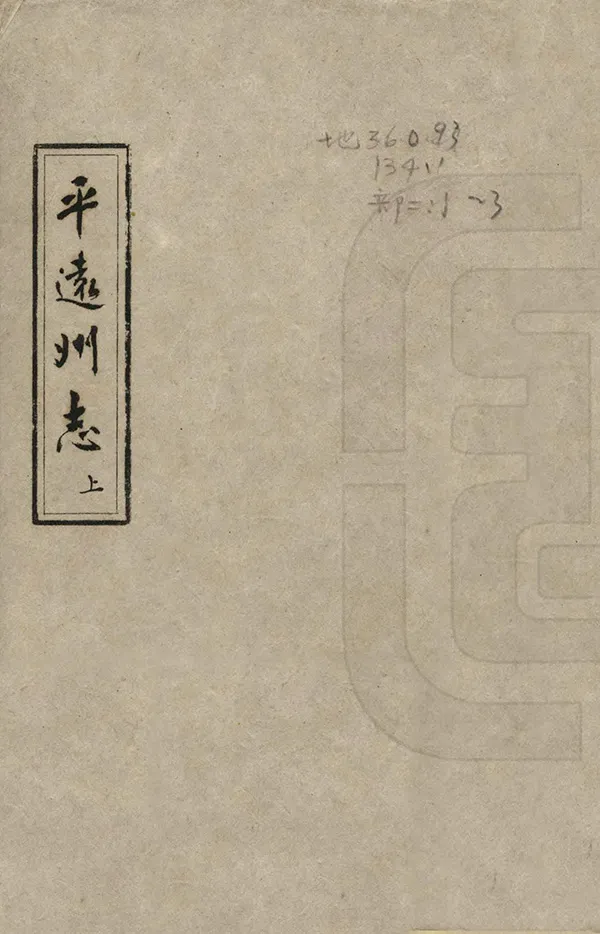 平遠州志
上
地360.93
134:1
部二:1~3